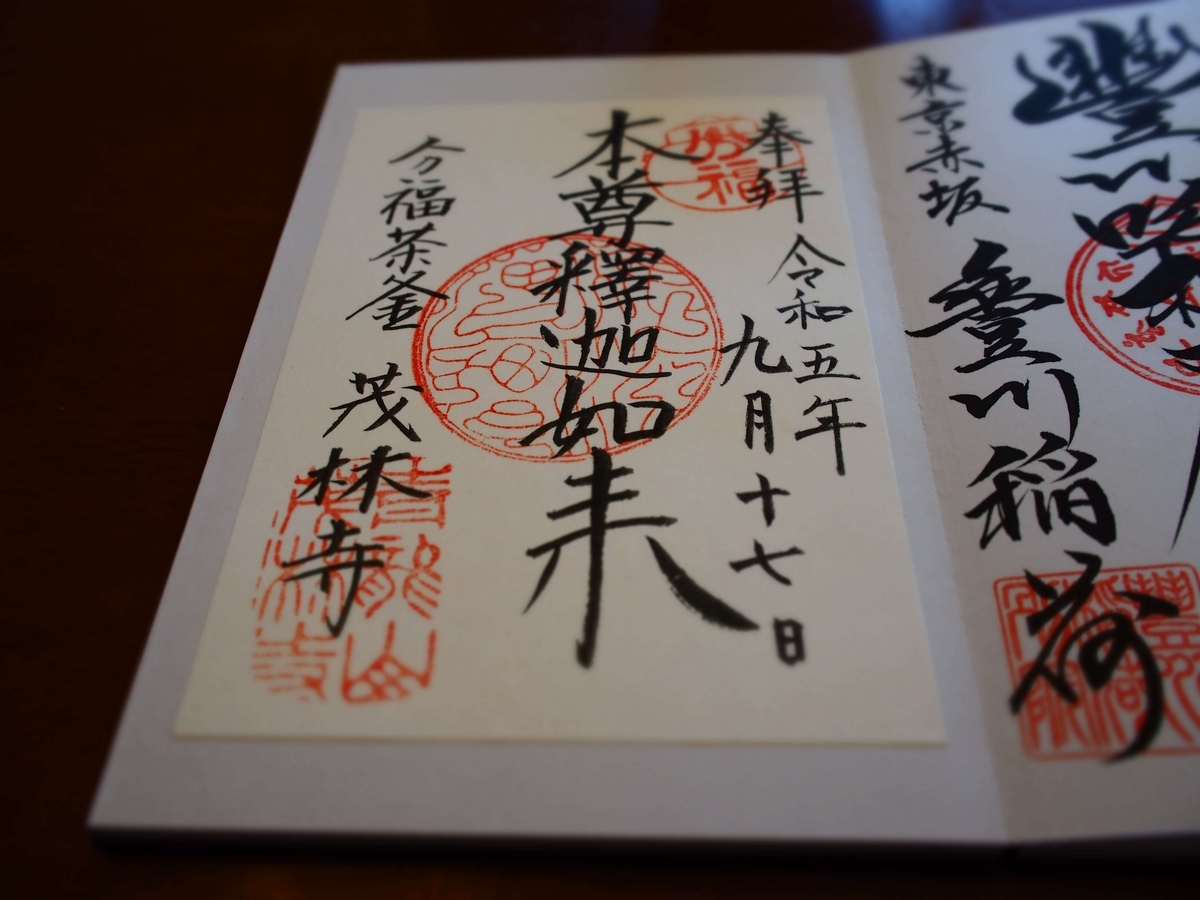 豐川
東京赤坂 豊川稲荷
奉拝 令和五年
九月十七日
分福
本尊釋迦如来
分福茶釜 茂林寺
青龍山
茂林寺